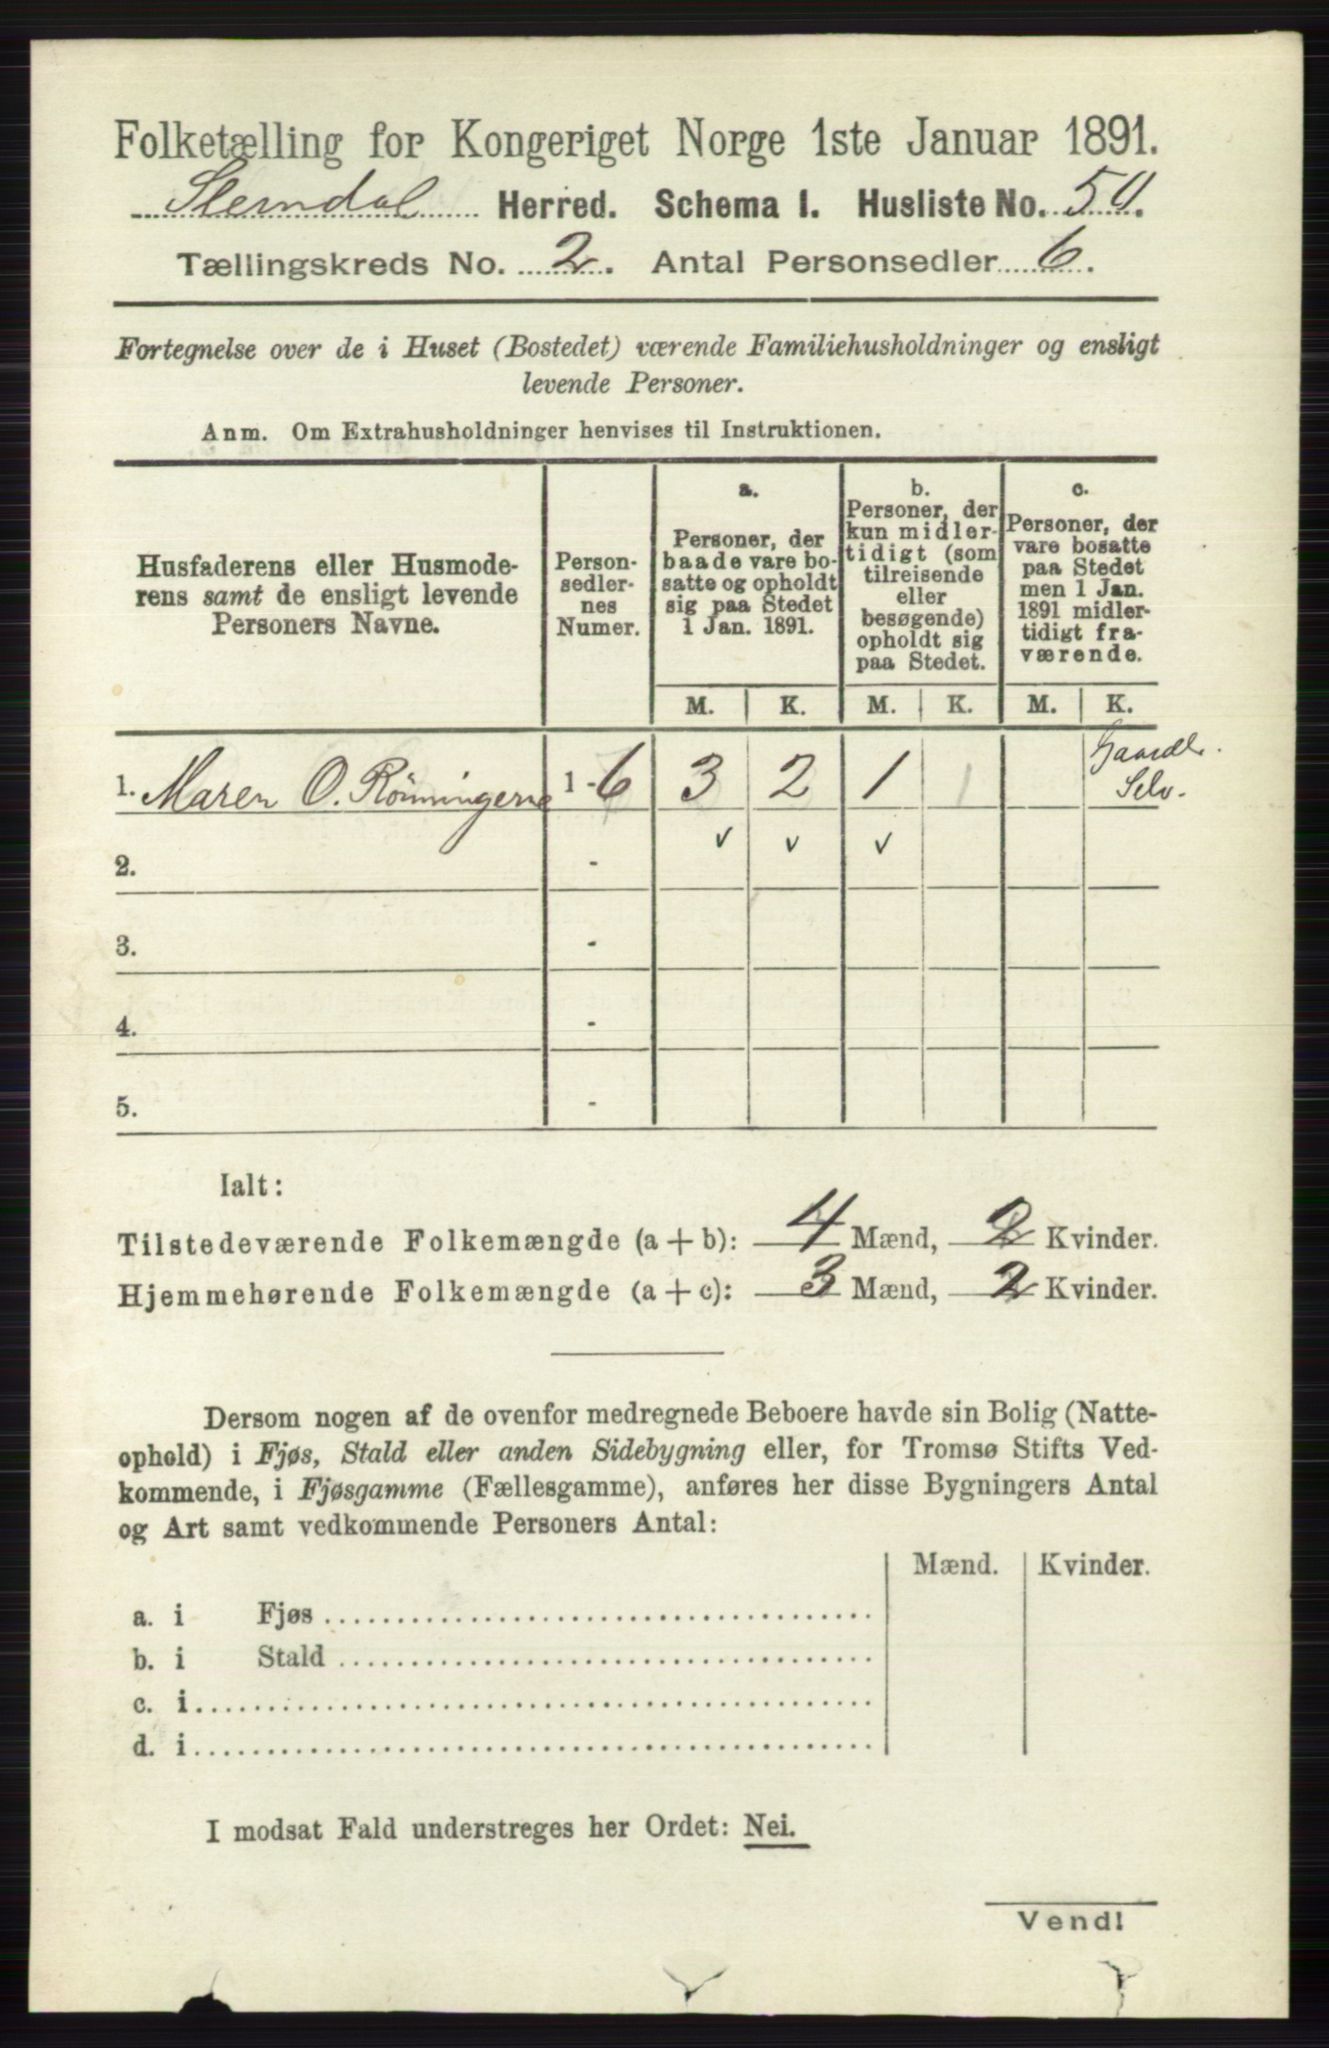 Folketælling for Kongeriget Norge 1ste Januar 1891.
Slemdal Herred. Schema I. Husliste No. 50.
Tællingskreds No. 2. Antal Personsedler 6.
Fortegnelse over de i Huset (Bostedet) værende Familiehusholdninger og ensligt
levende Personer.
Anm. Om Extrahusholdninger henvises til Instruktionen.
Husfaderens eller Husmode-
rens samt de ensligt levende
Personers Navne.
Person-
sedler-
nes
Numer.
a.
Personer, der
baade vare bo-
satte og opholdt
sig paa Stedet
1 Jan. 1891.
b.
Personer, der
kun midler-
tidigt (som
tilreisende
eller
besøgende)
opholdt sig
paa Stedet.
c.
Personer, der
vare bosatte
paa Stedet
men 1 Jan.
1891 midler-
tidigt fra-
værende.
M. K. M. K. M. K.
1. Maren O. Rönningerne 1 - 6 3 2 1 1
Gaardb.
Selv.
2. -
3. -
4. -
5. -
Ialt:
Tilstedeværende Folkemængde (a + b): 4 Mænd, 2 Kvinder.
Hjemmehørende Folkemængde (a + c): 3 Mænd, 2 Kvinder.
Dersom nogen af de ovenfor medregnede Beboere havde sin Bolig (Natte-
ophold) i Fjøs, Stald eller anden Sidebygning eller, for Tromsø Stifts Ved-
kommende, i Fjøsgamme (Fællesgamme), anføres her disse Bygningers Antal
og Art samt vedkommende Personers Antal:
Mænd. Kvinder.
a. i Fjøs
b. i Stald
c. i
d. i
I modsat Fald understreges her Ordet: Nei.
Vend!